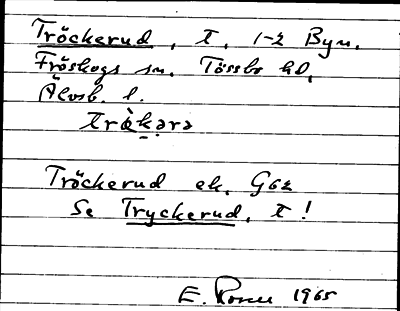 Tröckerud, T. 1-2 Byn.
Fröskogs sn. Tössbo hd,
Älvsb. l.
Tröckerud ek. G62
Se Tryckerud, T!
E. 1965